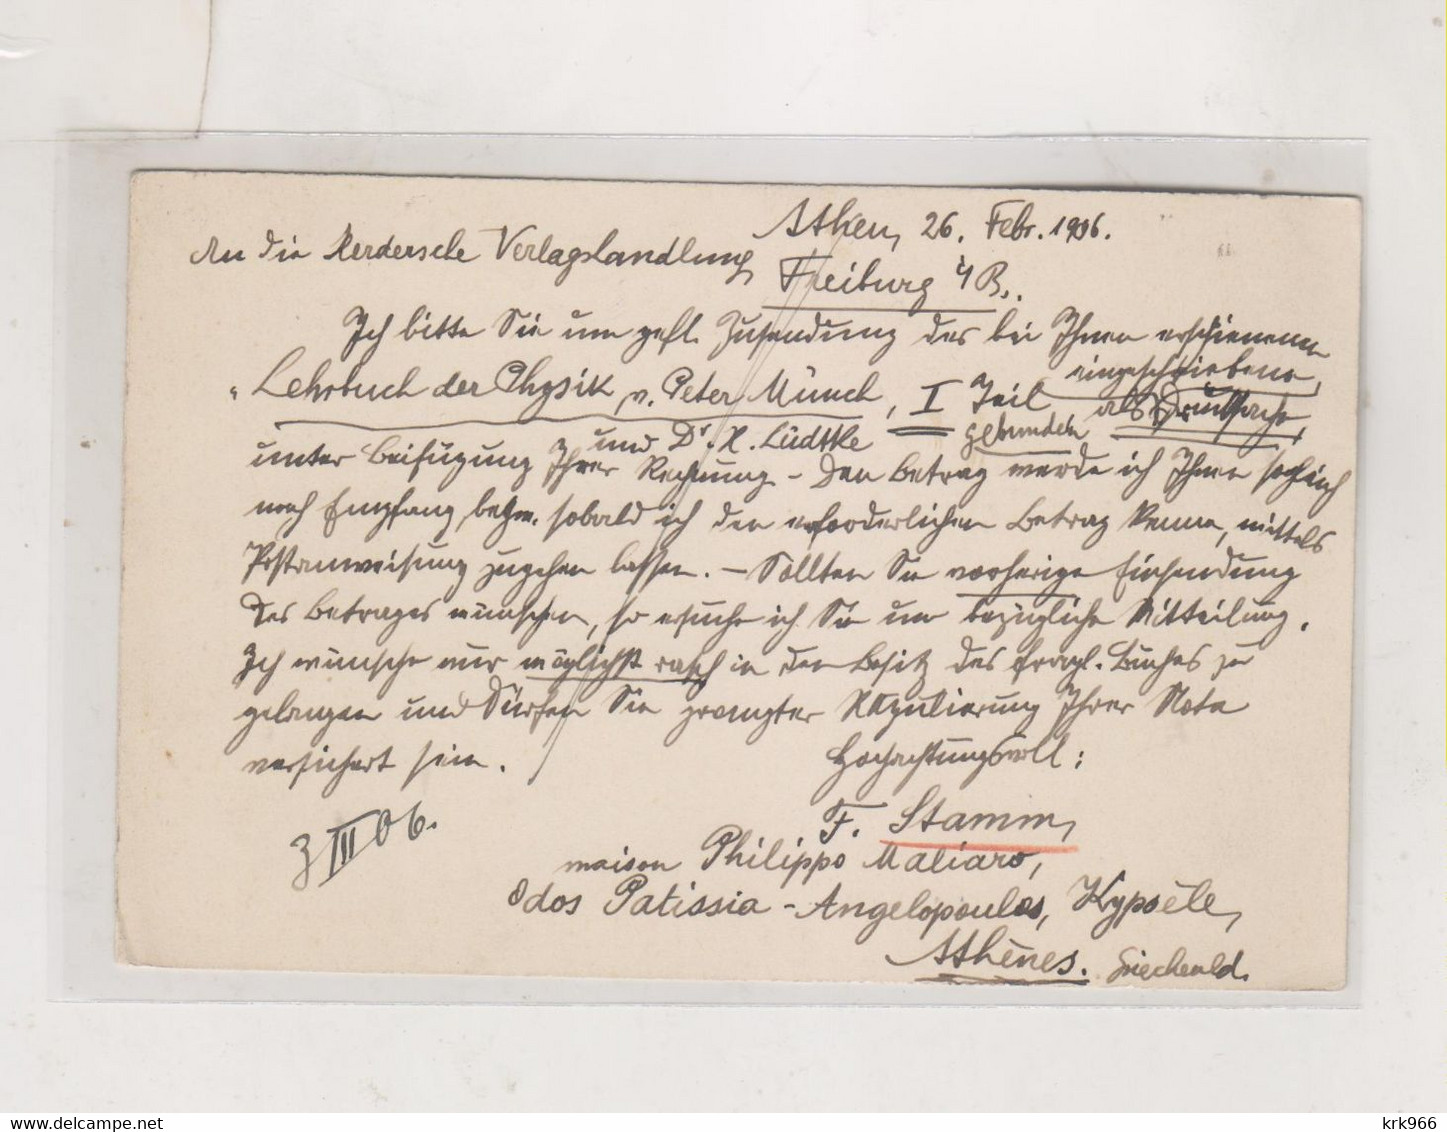 Athen, 26. Febr. 1906.
An die Herdersche Verlagshandlung
Freiburg i/B.
Ich bitte Sie um gefl. Zusendung des bei Ihnen erschienenen
"Lehrbuch der Physik v. Peter Münch, I Teil, eingeschrieben, als Drucksache,
und Dr. H. Lüdtke gebunden
unter Beifügung Ihrer Rechnung – Den Betrag werde ich Ihnen sogleich
nach Empfang, bezw. sobald ich den erforderlichen Betrag kenne, mittels
Postanweisung zugehen lassen. – Sollten Sie vorherige Einsendung
des Betrages wünschen, so ersuche ich Sie um bezügliche Mitteilung.
Ich wünsche nur möglichst rasch in den Besitz des fragl. Buches zu
gelangen und dürfen Sie prompter Regulierung Ihrer Nota
versichert sein. Hochachtungsvoll:
3 III 06.
F. Stamm,
maison Philippo Maliaro,
Odos Patissia - Angelopoulos, Kypsèle,
Athènes. Griechenld.
krk966